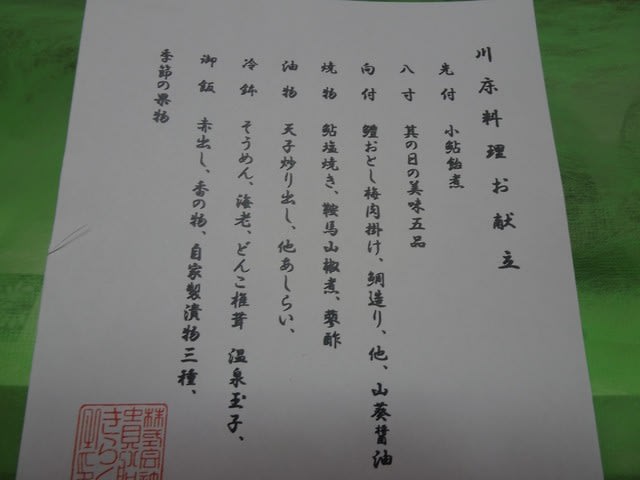 川床料理お献立
先付 小鮎飴煮
八寸 其の日の美味五品
向付 鱧おとし梅肉掛け、鯛造り、他、山葵醤油
焼物 鮎塩焼き、鞍馬山椒煮、蓼酢
油物 天子炒り出し、他あしらい、
冷鉢 そうめん、海老、どんこ椎茸 温泉玉子、
御飯 赤出し、香の物、自家製漬物三種、
季節の果物
株式会社
貴船
きらく